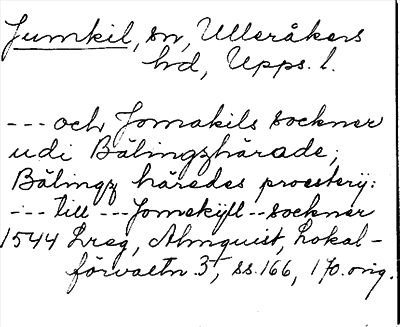 Jumkil, sn, Ulleråkers
hd, Upps. l.
--- och Jomakils sockner
udi Bälingzhärade;
Bälingz häredes proesterij:
--- till --- Jomekijll -- sockner
1544 Lreg, Almquist, Lokal-
förvaltn 3, ss. 166, 170. orig.